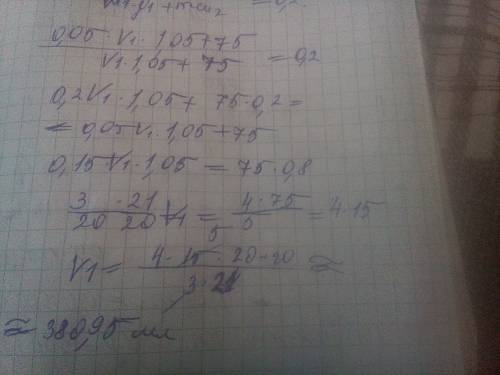 V₁·ρ₁+mсм₂ = 0,2
0,05·V₁·1,05+75 / V₁·1,05+75 = 0,2
0,2V₁·1,05+ 75·0,2=
= 0,05V₁·1,05+75
0,15V₁·1,05 = 75·0,8
3·21 / 20 20 V₁ = 4·75 / 5 = 4·15
V₁= 4·15·20·20 / 3·21 ≈
≈ 380,95 мл